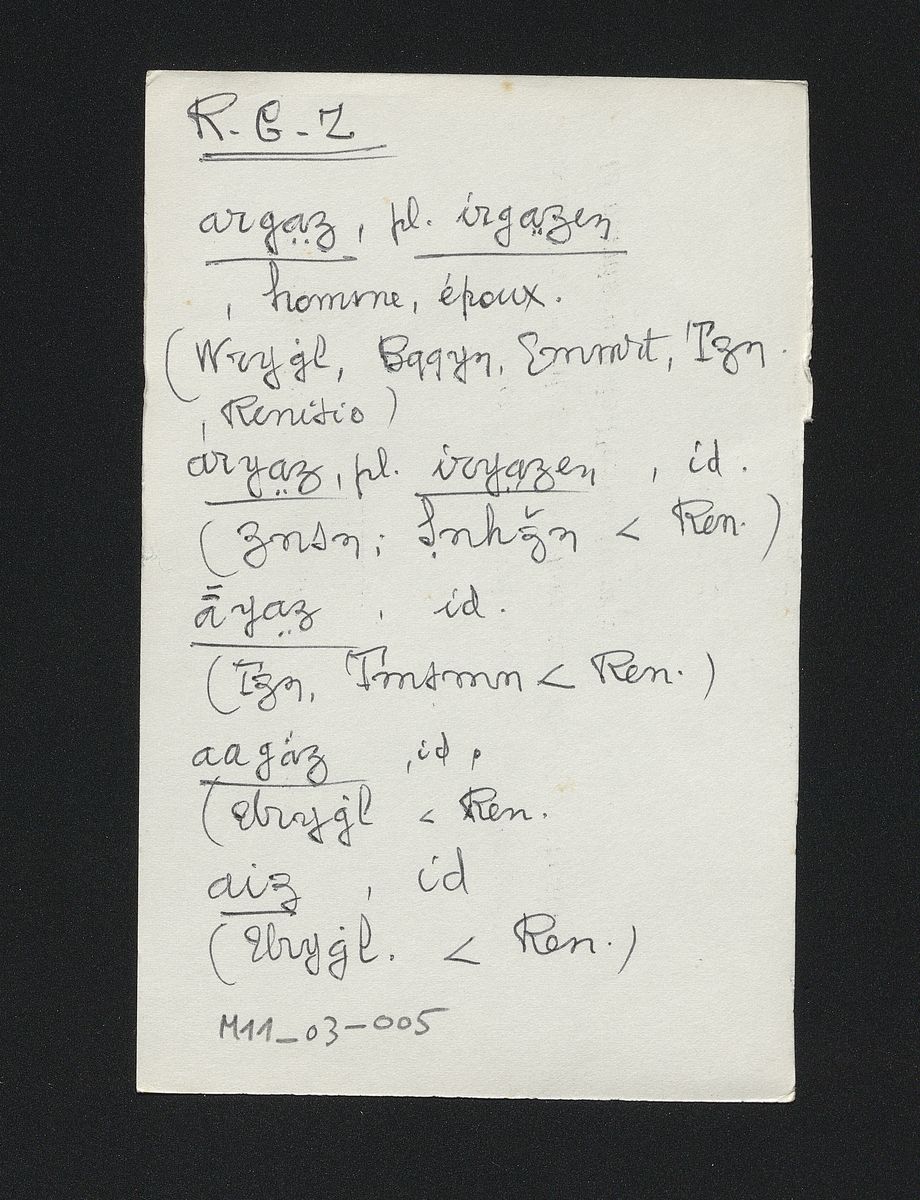 R-G-Z
argạ̈z, pl. irgạ̈zen
, homme, époux.
(Wryġl, Bqqyn, Emmrt, Tzn.
, Renisio)
aryạ̈z, pl. iryạ̈zen , id.
(Znsn; Ṣnhǧn < Ren.)
ā̈yạ̈z , id.
(Izn, Tmsmn < Ren.)
aagáz , id.
(Wryġl < Ren.
aiz , id
(Wryġl. < Ren.)
M11_03-005